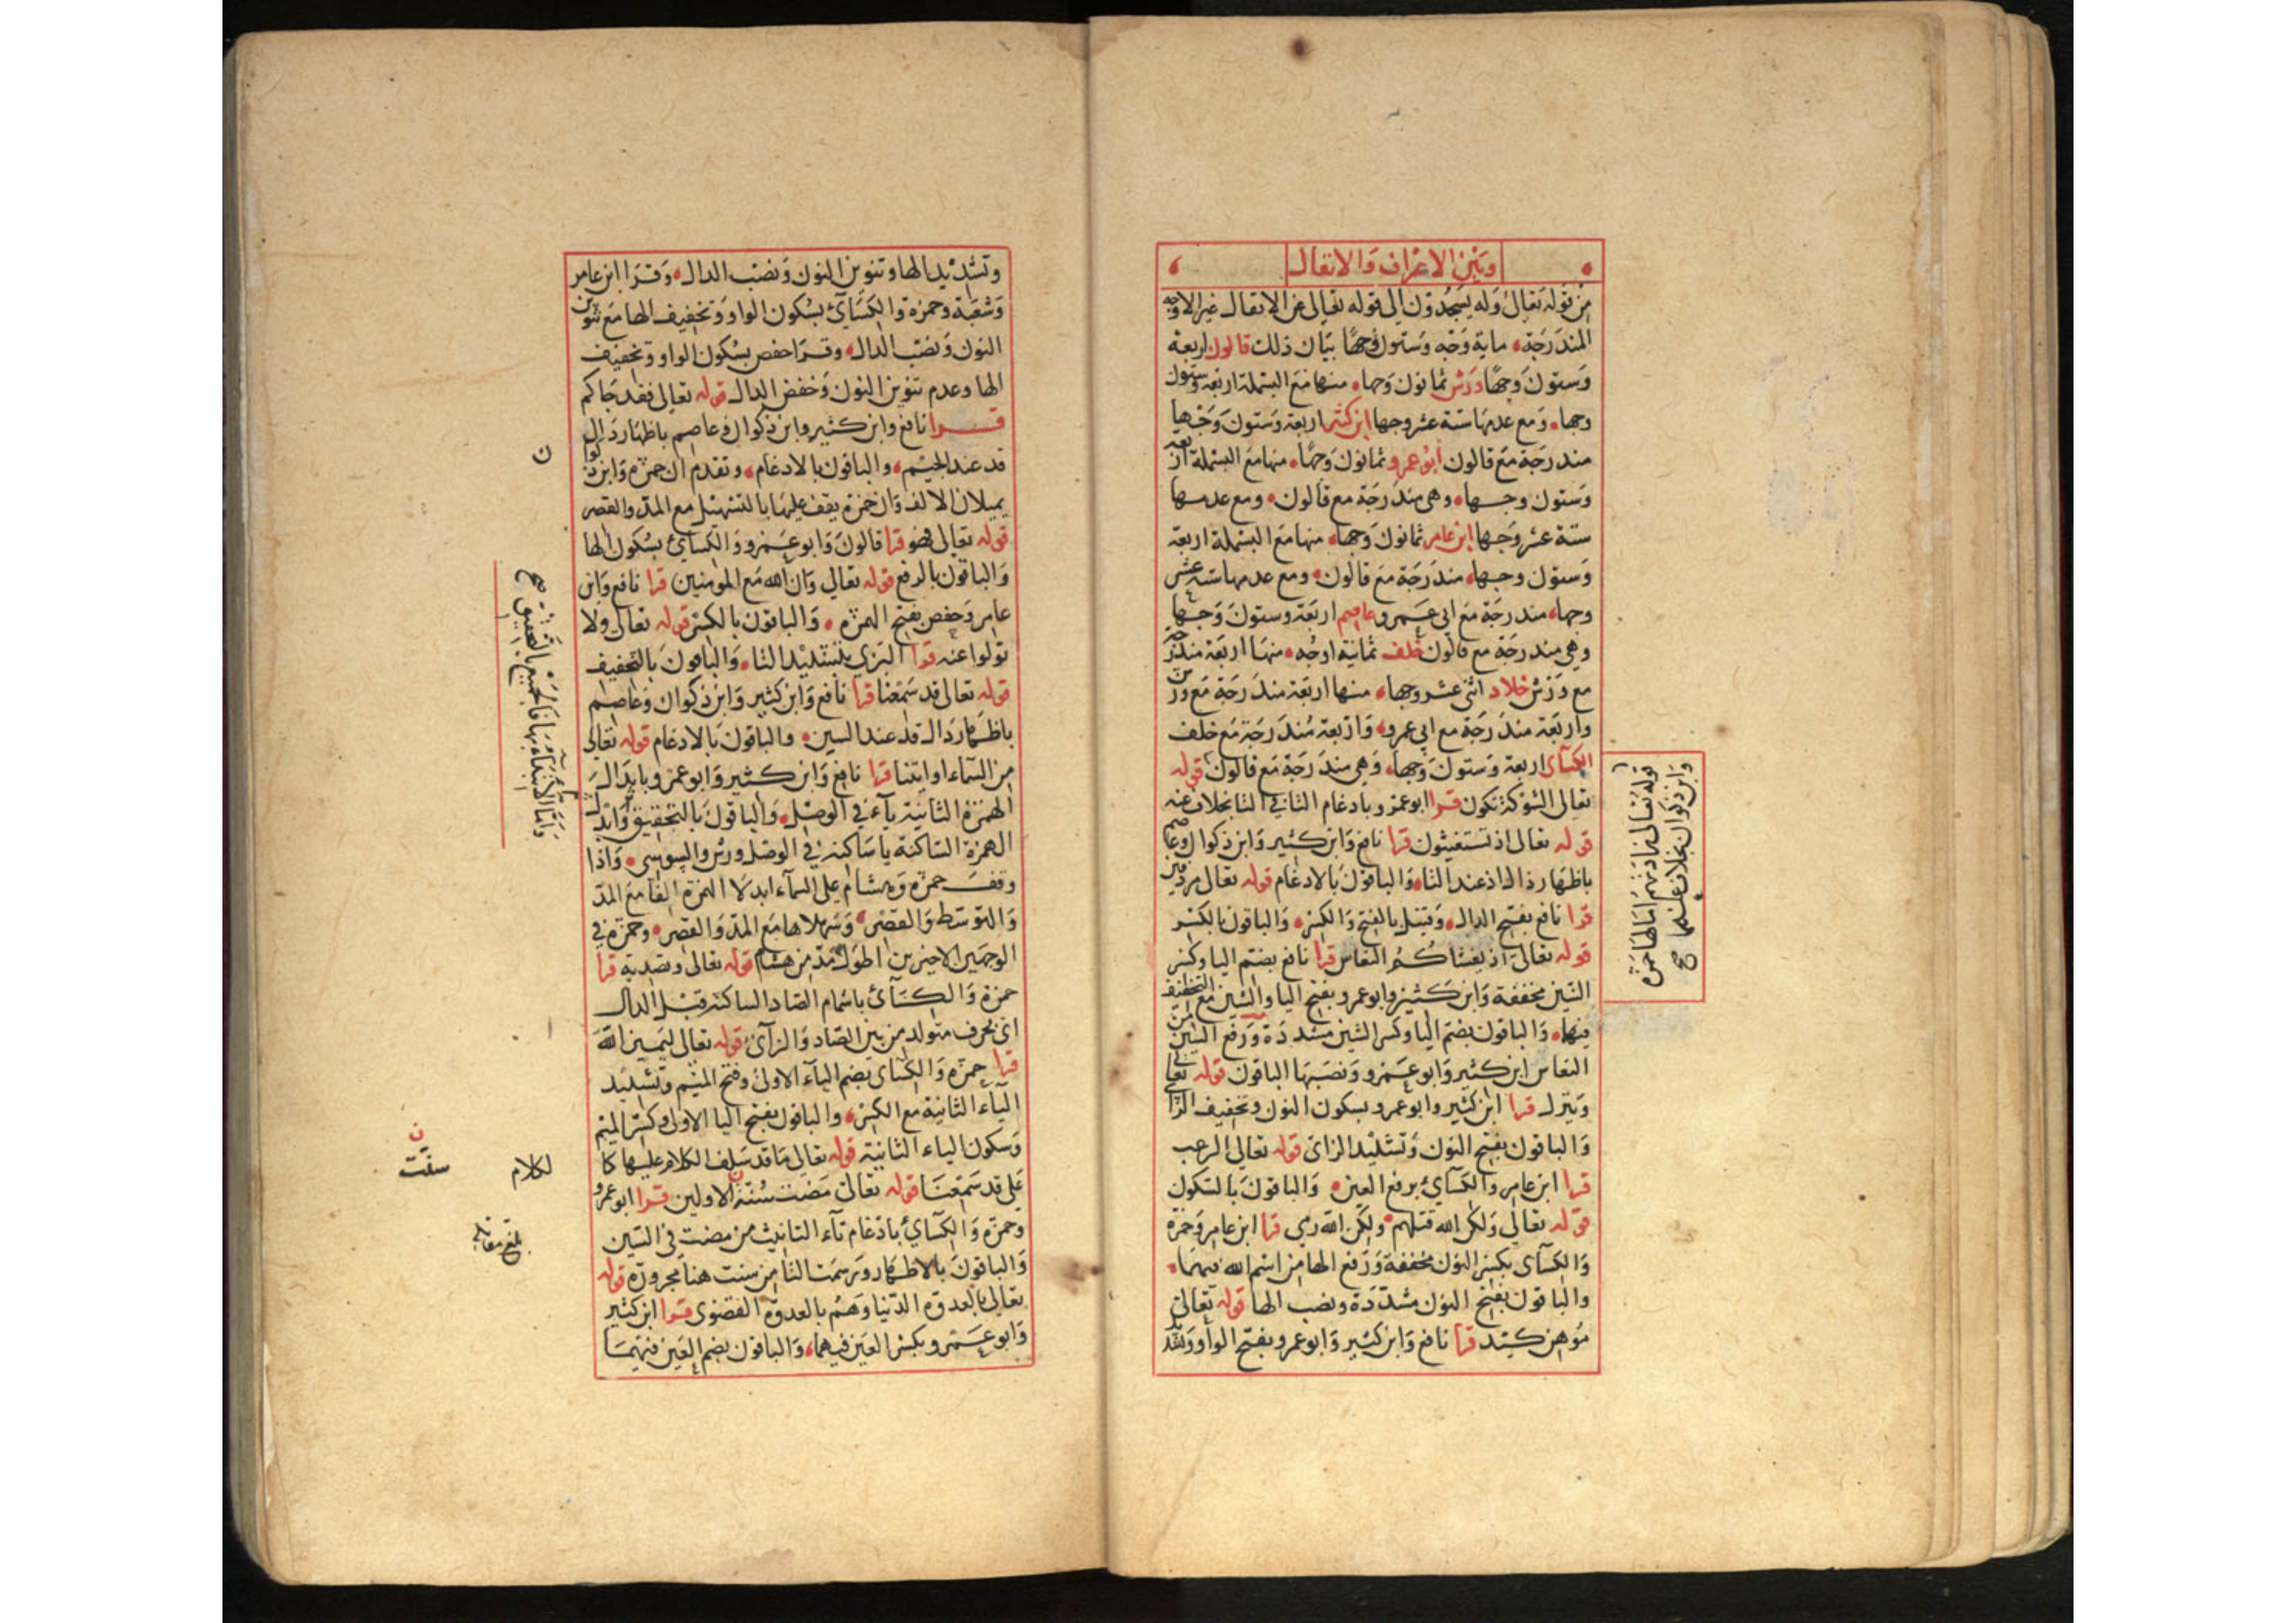 وبين الاعراف والانفال
من قوله تعالى وله يسجدون الى قوله تعالى عن الانفال غير الاوجه
المندرجة مائة وجه وستون وجها بيان ذلك قالون اربعة
وستون وجها ورش ثمانون وجها منها مع البسملة اربعة وستون
وجها ومع عدمها ستة عشر وجها ابن كثير اربعة وستون وجها
مندرجة مع قالون ابو عمرو ثمانون وجها منها مع البسملة اربعة
وستون وجها وهي مندرجة مع قالون ومع عدمها
ستة عشر وجها ابن عامر ثمانون وجها منها مع البسملة اربعة
وستون وجها مندرجة مع قالون ومع عدمها ستة عشر
وجها مندرجة مع ابى عمرو عاصم اربعة وستون وجها
وهي مندرجة مع قالون خلف ثمانية اوجه منها اربعة مندرجة
مع ورش خلاد اثنى عشر وجها منها اربعة مندرجة مع ورش
واربعة مندرجة مع ابي عمرو واربعة مندرجة مع خلف
الكسآى اربعة وستون وجها وهي مندرجة مع قالون قوله
تعالى الشوكة تكون قرا ابو عمرو بادغام التا في التا بخلاف عنه
قوله تعالى اذ تستغيثون قرا نافع وابن كثير وابن ذكوان وعاصم
باظهار ذال اذ عند التا والباقون بالادغام قوله تعالى مردفين
قرا نافع بفتح الدال وقنبل بالفتح والكسر والباقون بالكسر
قوله تعالى اذ يغشاكم النعاس قرا نافع بضم اليا وكسر
الشين مخففة وابن كثير وابو عمرو بفتح اليا والشين مع التخفيف
فيها والباقون بضم اليا وكسر الشين مشددة ورفع السين من
النعاس ابن كثير وابو عمرو ونصبها الباقون قوله تعالى
وينزل قرا ابن كثير وابو عمرو بسكون النون وتخفيف الزاى
والباقون بفتح النون وتشديد الزاى قوله تعالى الرعب
قرا ابن عامر والكسآي برفع العين والباقون بالسكون
قوله تعالى ولكن الله قتلهم ولكن الله رمي قرا ابن عامر وحمزة
والكسآى بكسر النون مخففة ورفع الها من اسم الله فيهما
والباقون بفتح النون مشددة ونصب الها قوله تعالى
موهن كيد قرا نافع وابن كثير وابو عمرو بفتح الواو
قوله تعالى فزادتهم امالها حمزة
وابن ذكوان بخلاف عنه صح
وتشديد الها وتنوين النون ونصب الدال وقرا ابن عامر
وشعبة وحمزة والكسآئ بسكون الواو وتخفيف الها مع تنوين
النون ونصب الدال وقرا حفص بسكون الواو وتخفيف
الها وعدم تنوين النون وخفض الدال قوله تعالى فقد جاكم
قرا نافع وابن كثير وابن ذكوان وعاصم باظهار دال
قد عند الجيم والباقون بالادغام وتقدم ان حمزه وابن ذكوان
يميلان الالف وان حمزة يقف عليها بالتسهيل مع المد والقصر
قوله تعالى فهو قرا قالون وابو عمرو والكسآي بسكون الها
والباقون بالرفع قوله تعالى وان الله مع المومنين قرا نافع وابن
عامر وحفص بفتح الهمزه والباقون بالكسر قوله تعالى ولا
تولوا عنه قرا البزي بتشديد التا والباقون بالتخفيف
قوله تعالى قد سمعنا قرا نافع وابن كثير وابن ذكوان وعاصم
باظهار دال قد عند السين والباقون بالادغام قوله تعالى
من السماء او ايتنا قرا نافع وابن كثير وابو عمرو بابدال
الهمزة الثانية يآء في الوصل والباقون بالتحقيق وابدل
الهمزة الساكنة يا ساكنة في الوصل ورش والسوسى واذا
وقف حمزه وهشام على السمآء ابدلا الهمزة الفا مع المد
والتوسط والقصر وسهلاها مع المد والقصر وحمزة في
الوجهين الاخيرين اطول مد من هشام قوله تعالى وتصدية قرا
حمزة والكسآئ باشمام الصاد الساكنة قبل الدال
اى بحرف متولد من بين الصاد والزآى قوله تعالى ليميز الله
قرا حمزه والكسآى بضم اليآء الاولى وفتح الميم وتشديد
اليآء الثانية مع الكسر والباقون بفتح اليا الاولى وكسر الميم
وسكون الياء الثانية قوله تعالى ما قد سلف الكلام عليها كا
على قد سمعنا قوله تعالى مضت سنة الاولين قرا ابو عمرو
وحمزه والكسآي بادغام تآء التانيث من مضت في السين
والباقون بالاظهار ورسمت التا من سنت هنا مجرورة قوله
تعالى بالعدوه الدنيا وهم بالعدوة القصوى قرا ابن كثير
وابو عمرو بكسر العين فيهما والباقون بضم العين فيهما
ن
واما الابتداء بها فالجميع بالتحقيق صح
لكلام
ن
سنت
بلغ مقابلة